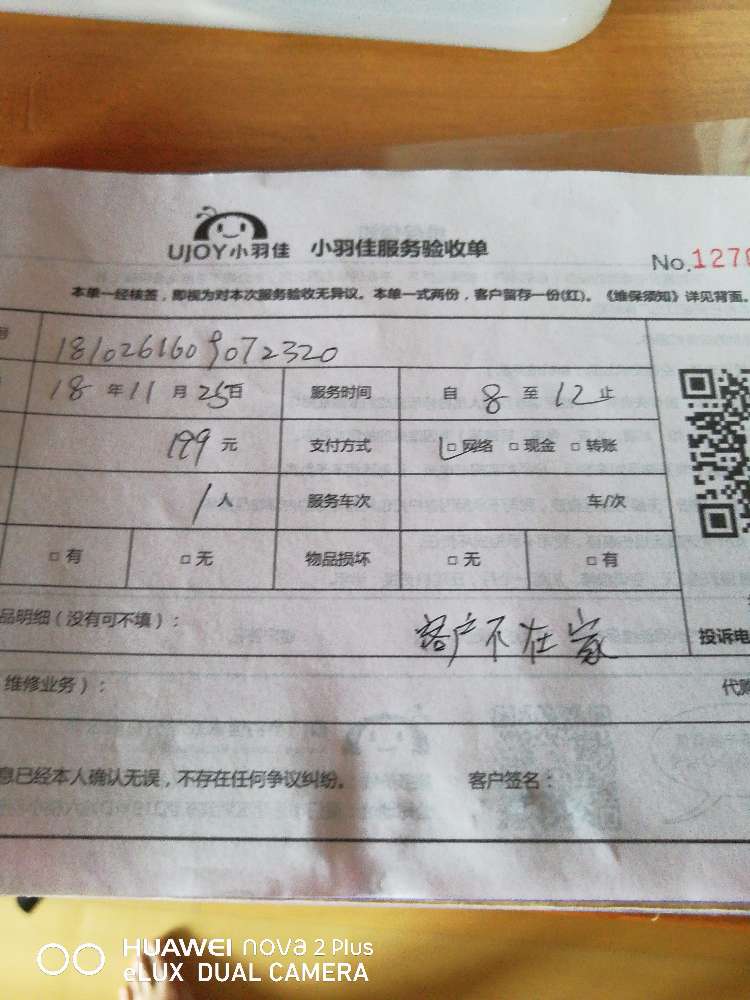 UJOY小羽佳 小羽佳服务验收单
No.1270
本单一经核签，即视为对本次服务验收无异议。本单一式两份，客户留存一份(红)。《维保须知》详见背面。
号 1810261609072320
18年11月25日 服务时间 自8至12止
199元 支付方式 □网络 □现金 □转账
1人 服务车次 车/次
□有 □无 物品损坏 □无 □有
品明细（没有可不填）： 客户不在家
投诉电
维修业务）： 代购
息已经本人确认无误，不存在任何争议纠纷。 客户签名：
HUAWEI nova 2 Plus
eLUX DUAL CAMERA